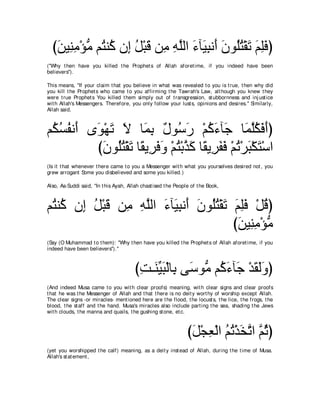 (فَلِمَ تَقْتُلُونَ أَنبِيَآءَ اللَّهِ مِن قَبْلُ إِن كُنتُم مُّؤْمِنِينَ)
("Why then have you killed the Prophets of Allah aforetime, if you indeed have been
believers").
This means, "If your claim that you believe in what was revealed to you is true, then why did
you kill the Prophets who came to you affirming the Tawrah's Law, although you knew they
were true Prophets You killed them simply out of transgression, stubbornness and injustice
with Allah's Messengers. Therefore, you only follow your lusts, opinions and desires." Similarly,
Allah said,
(أَفَكُلَّمَا جَآءَكُمْ رَسُولٌ بِمَا لاَ تَهْوَى أَنفُسُكُمُ
اسْتَكْبَرْتُمْ فَفَرِيقًا كَذَّبْتُمْ وَفَرِيقًا تَقْتُلُونَ)
(Is it that whenever there came to you a Messenger with what you yourselves desired not, you
grew arrogant Some you disbelieved and some you killed.)
Also, As-Suddi said, "In this Ayah, Allah chastised the People of the Book,
(قُلْ فَلِمَ تَقْتُلُونَ أَنبِيَآءَ اللَّهِ مِن قَبْلُ إِن كُنتُم
مُّؤْمِنِينَ)
(Say (O Muhammad to them): "Why then have you killed the Prophets of Allah aforetime, if you
indeed have been believers").''
(وَلَقَدْ جَآءَكُم مُّوسَى بِالْبَيِّنَـتِ)
(And indeed Musa came to you with clear proofs) meaning, with clear signs and clear proofs
that he was the Messenger of Allah and that there is no deity worthy of worship except Allah.
The clear signs -or miracles- mentioned here are the flood, the locusts, the lice, the frogs, the
blood, the staff and the hand. Musa's miracles also include parting the sea, shading the Jews
with clouds, the manna and quails, the gushing stone, etc.
(ثُمَّ اتَّخَذْتُمُ الْعِجْلَ)
(yet you worshipped the calf) meaning, as a deity instead of Allah, during the time of Musa.
Allah's statement,